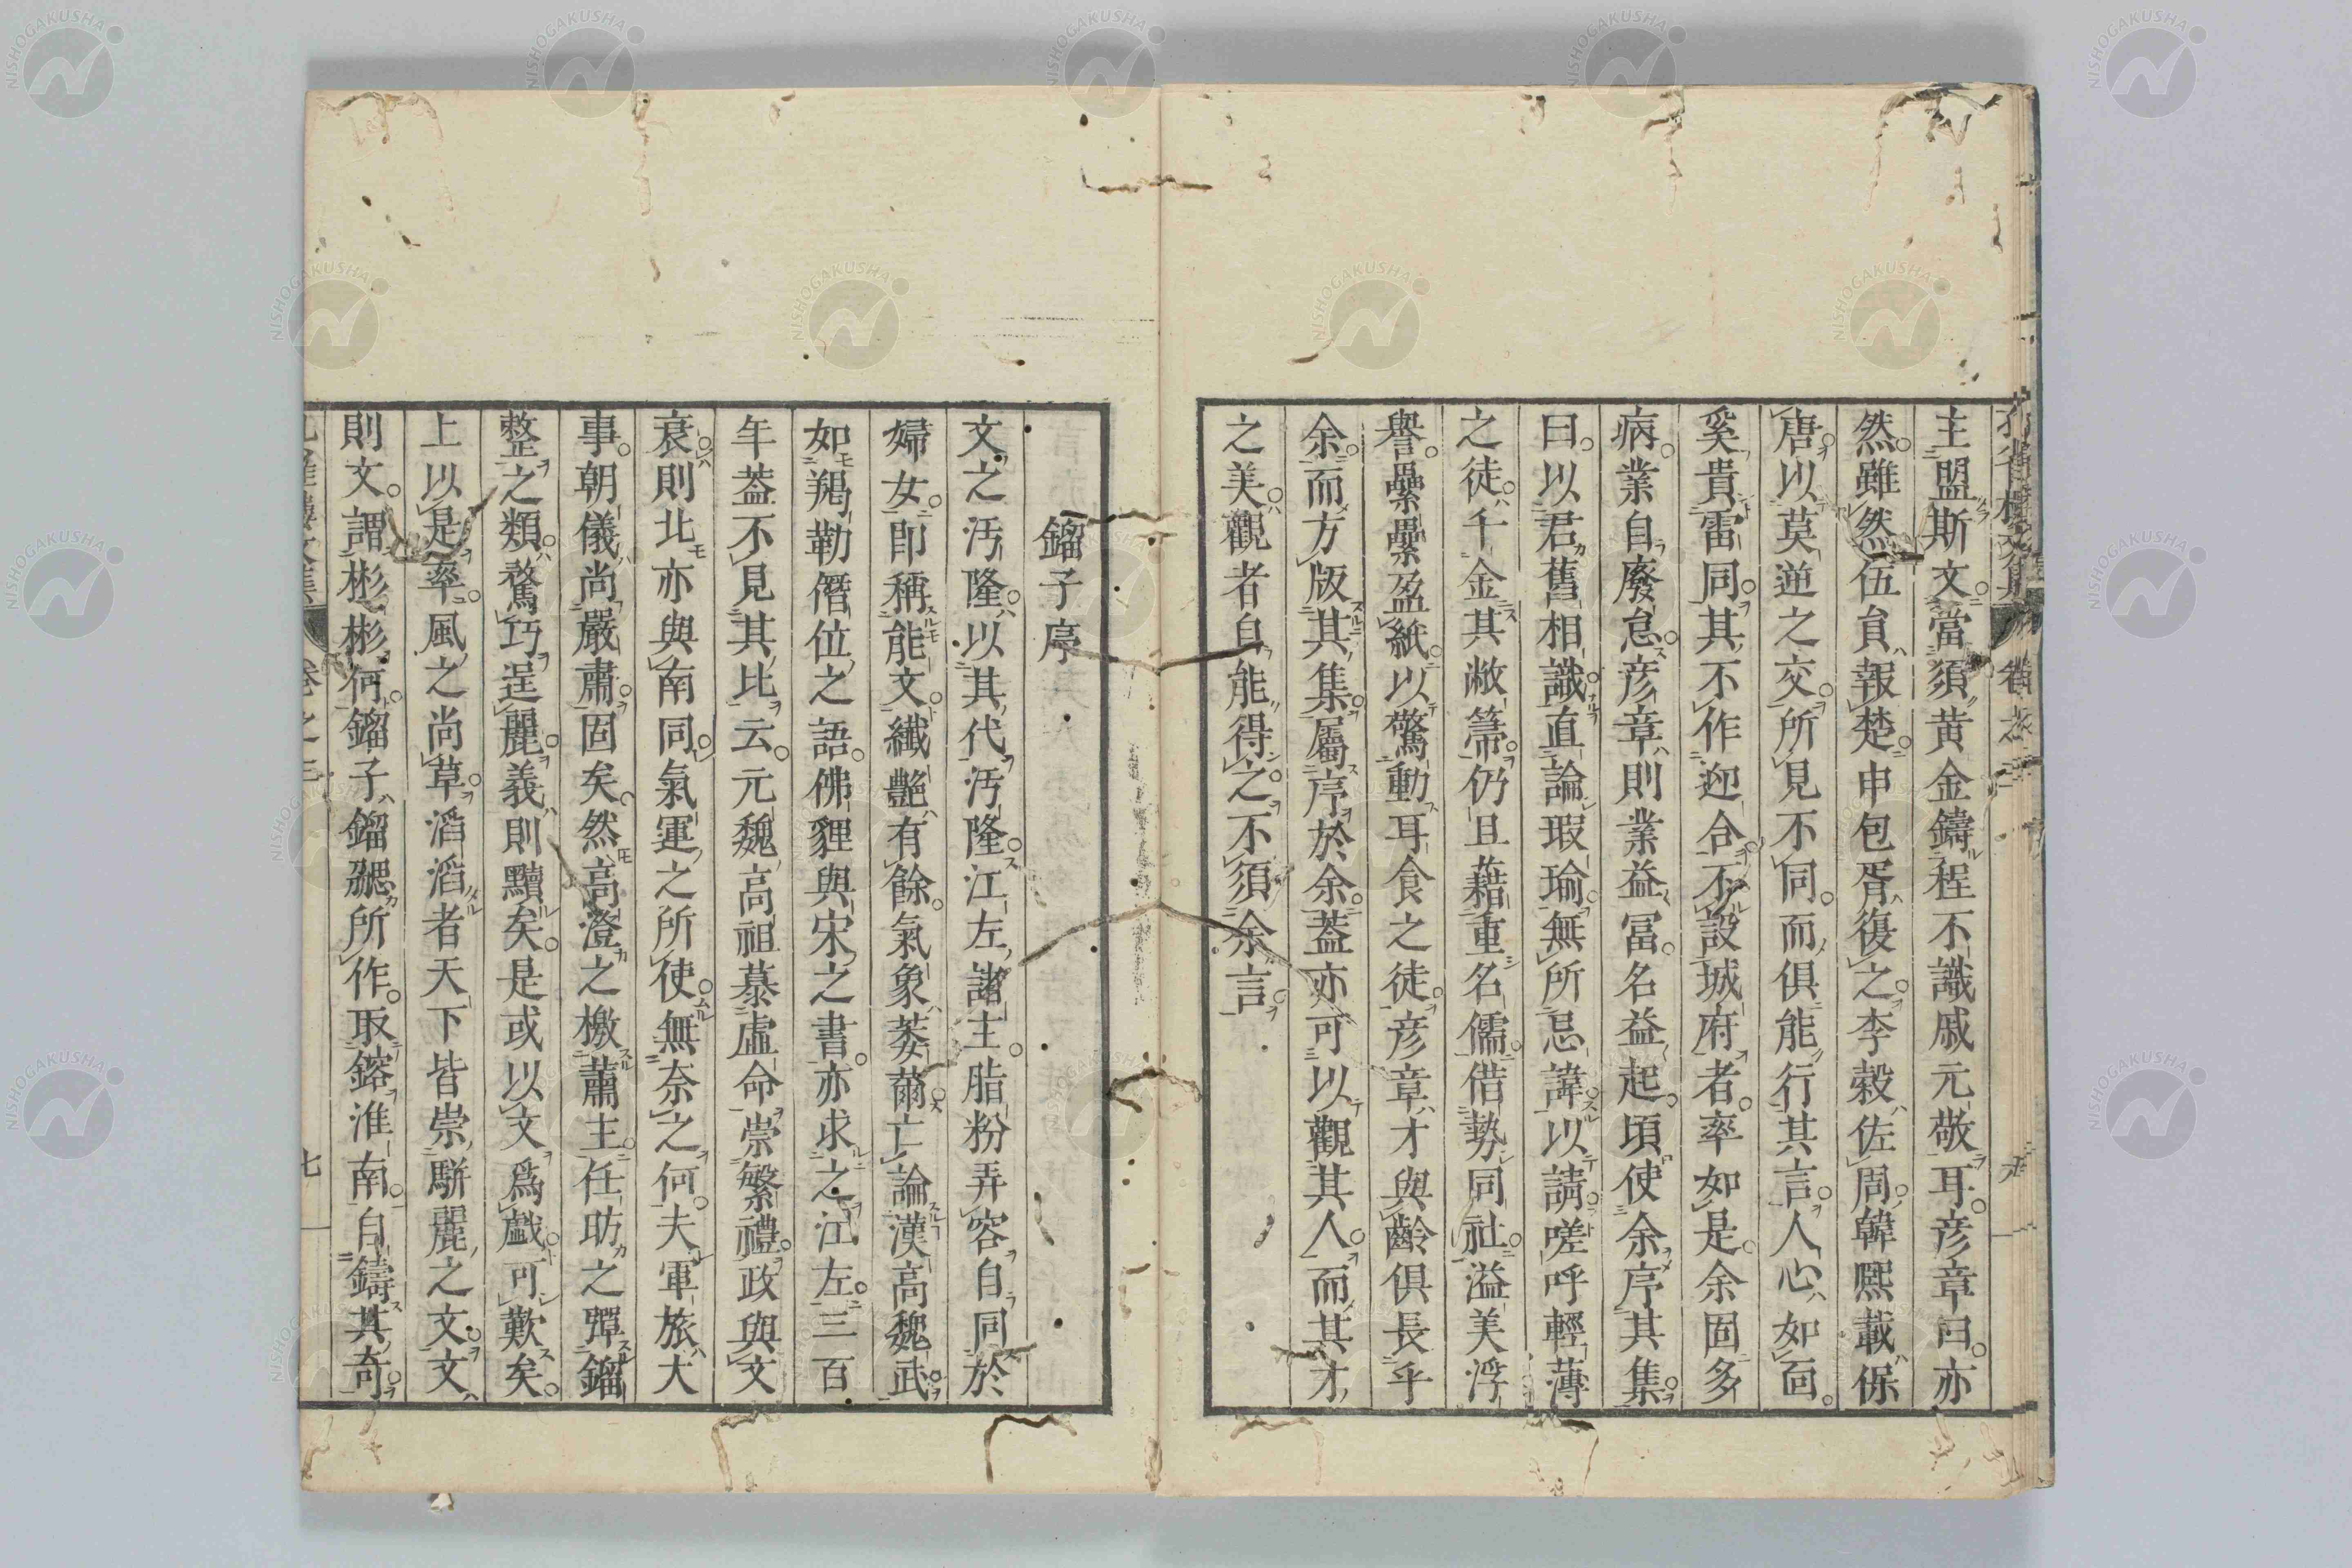 主盟斯文當須黄金鑄程不識戚元敬耳彦章曰亦
然雖然伍員報楚申包胥復之李榖佐周韓熙載保
唐以莫逆之交所見不同而俱能行其言人心如面
奚貴雷同其不作迎合不設城府者率如是余固多
病業自廢怠彦章則業益冨名益起頃使余序其集
曰以君舊相識直論瑕瑜無所忌諱以請嗟呼輕薄
之徒千金其敝箒仍且藉重名儒借勢同社溢美浮
譽纍纍盈紙以驚動耳食之徒彦章才與齡俱長乎
余而方版其集屬序於余蓋亦可以觀其人而其才
之美觀者自能得之不須余言
鎦子序
文之汚隆以其代汚隆江左諸主脂粉弄容自同於
婦女即稱能文纖艷有餘氣象萎薾亡論漢高魏武
如羯勒僭位之語佛貍與宋之書亦求之江左三百
年葢不見其比云元魏高祖慕虚命崇繁禮政與文
衰則北亦與南同氣運之所使無奈之何夫軍旅大
事朝儀尚嚴肅固矣然高澄之檄蕭主任昉之彈鎦
整之類騖巧逞麗義則黷矣是或以文爲戲可歎矣
上以是率風之尚草滔滔者天下皆崇駢麗之文文
則文謂彬彬何鎦子鎦勰所作取鎔淮南自鑄其奇
七